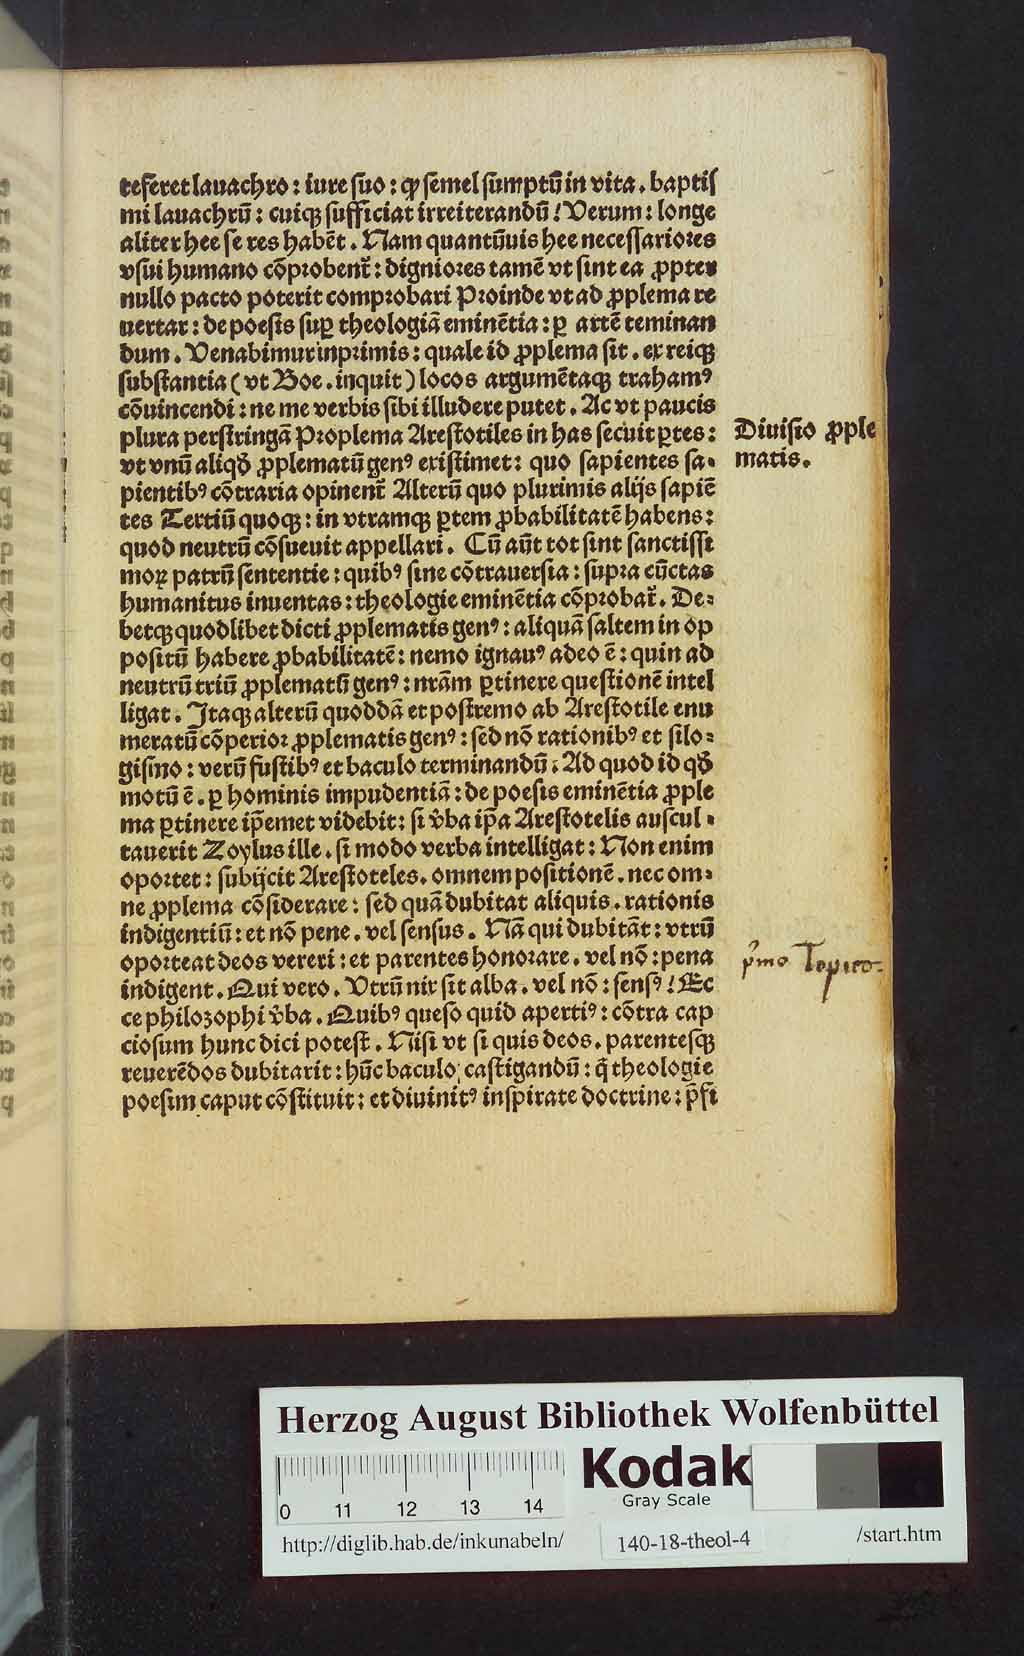 teferet lauachro: iure suo: ꝙ semel sumptū in vita. baptis
mi lauachrū: cuiqꝫ sufficiat irreiterandū! Verum: longe
aliter hee se res habēt. Nam quantūuis hee necessariores
vsui humano cōprobent᷑: digniores tamē vt sint ea ꝓpter
nullo pacto poterit comprobari Proinde vt ad ꝓplema re
uertar: de poesis suꝑ theologiā eminētia: ꝑ artē teminan
dum. Venabimur inprimis: quale id ꝓplema sit. ex reiqꝫ
substantia (vt Boe. inquit) locos argumētaqꝫ trahamꝰ
cōuincendi: ne me verbis sibi illudere putet. Ac vt paucis
plura perstringā Proplema Arestotiles in has secuit ꝑtes:
vt vnū aliqḋ ꝓplematū genꝰ existimet: quo sapientes sa-
pientibꝰ cōtraria opinent᷑ Alterū quo plurimis alijs sapiē
tes Tertiū quoqꝫ: in vtramqꝫ ꝑtem ꝓbabilitatē habens:
quod neutrū cōsueuit appellari. Cū aūt tot sint sanctissi
moꝝ patrū sententie: quibꝰ sine cōtrauersia: supra cūctas
humanitus inuentas: theologie eminētia cōprobat᷑. De-
betqꝫ quodlibet dicti ꝓplematis genꝰ: aliquā saltem in op
positū habere ꝓbabilitatē: nemo ignauꝰ adeo ē: quin ad
neutrū triū ꝓplematū genꝰ: nrām ꝑtinere questionē intel
ligat. Itaqꝫ alterū quoddā et postremo ab Arestotile enu
meratū cōperior ꝓplematis genꝰ: sed nō rationibꝰ et silo-
gismo: verū fustibꝰ et baculo terminandū. Ad quod id qḋ
motū ē. ꝑ hominis impudentiā: de poesis eminētia ꝓple
ma ꝑtinere ip̄emet videbit: si v̓ba ip̄a Arestotelis auscul-
tauerit Zoylus ille. si modo verba intelligat: Non enim
oportet: subijcit Arestoteles. omnem positionē. nec om-
ne ꝓplema cōsiderare: sed quā dubitat aliquis. rationis
indigentiū: et nō pene. vel sensus. Nā qui dubitāt: vtrū
oporteat deos vereri: et parentes honorare. vel nō: pena
indigent. Qui vero. Vtrū nix sit alba. vel nō: sensꝰ! Ec
ce philosophi v̓ba. Quibꝰ queso quid apertiꝰ: cōtra cap
ciosum hunc dici potest. Nisi vt si quis deos. parentesqꝫ
reuerēdos dubitarit: hūc baculo castigandū: q̄ theologie
poesim caput cōstituit: et diuinitꝰ inspirate doctrine: p̄fi
Diuisio ꝓple
matis.
p̓mo Topico.
Herzog August Bibliothek Wolfenbüttel
0 11 12 13 14
Kodak
Gray Scale
http://diglib.hab.de/inkunabeln/
140-18-theol-4
/start.htm